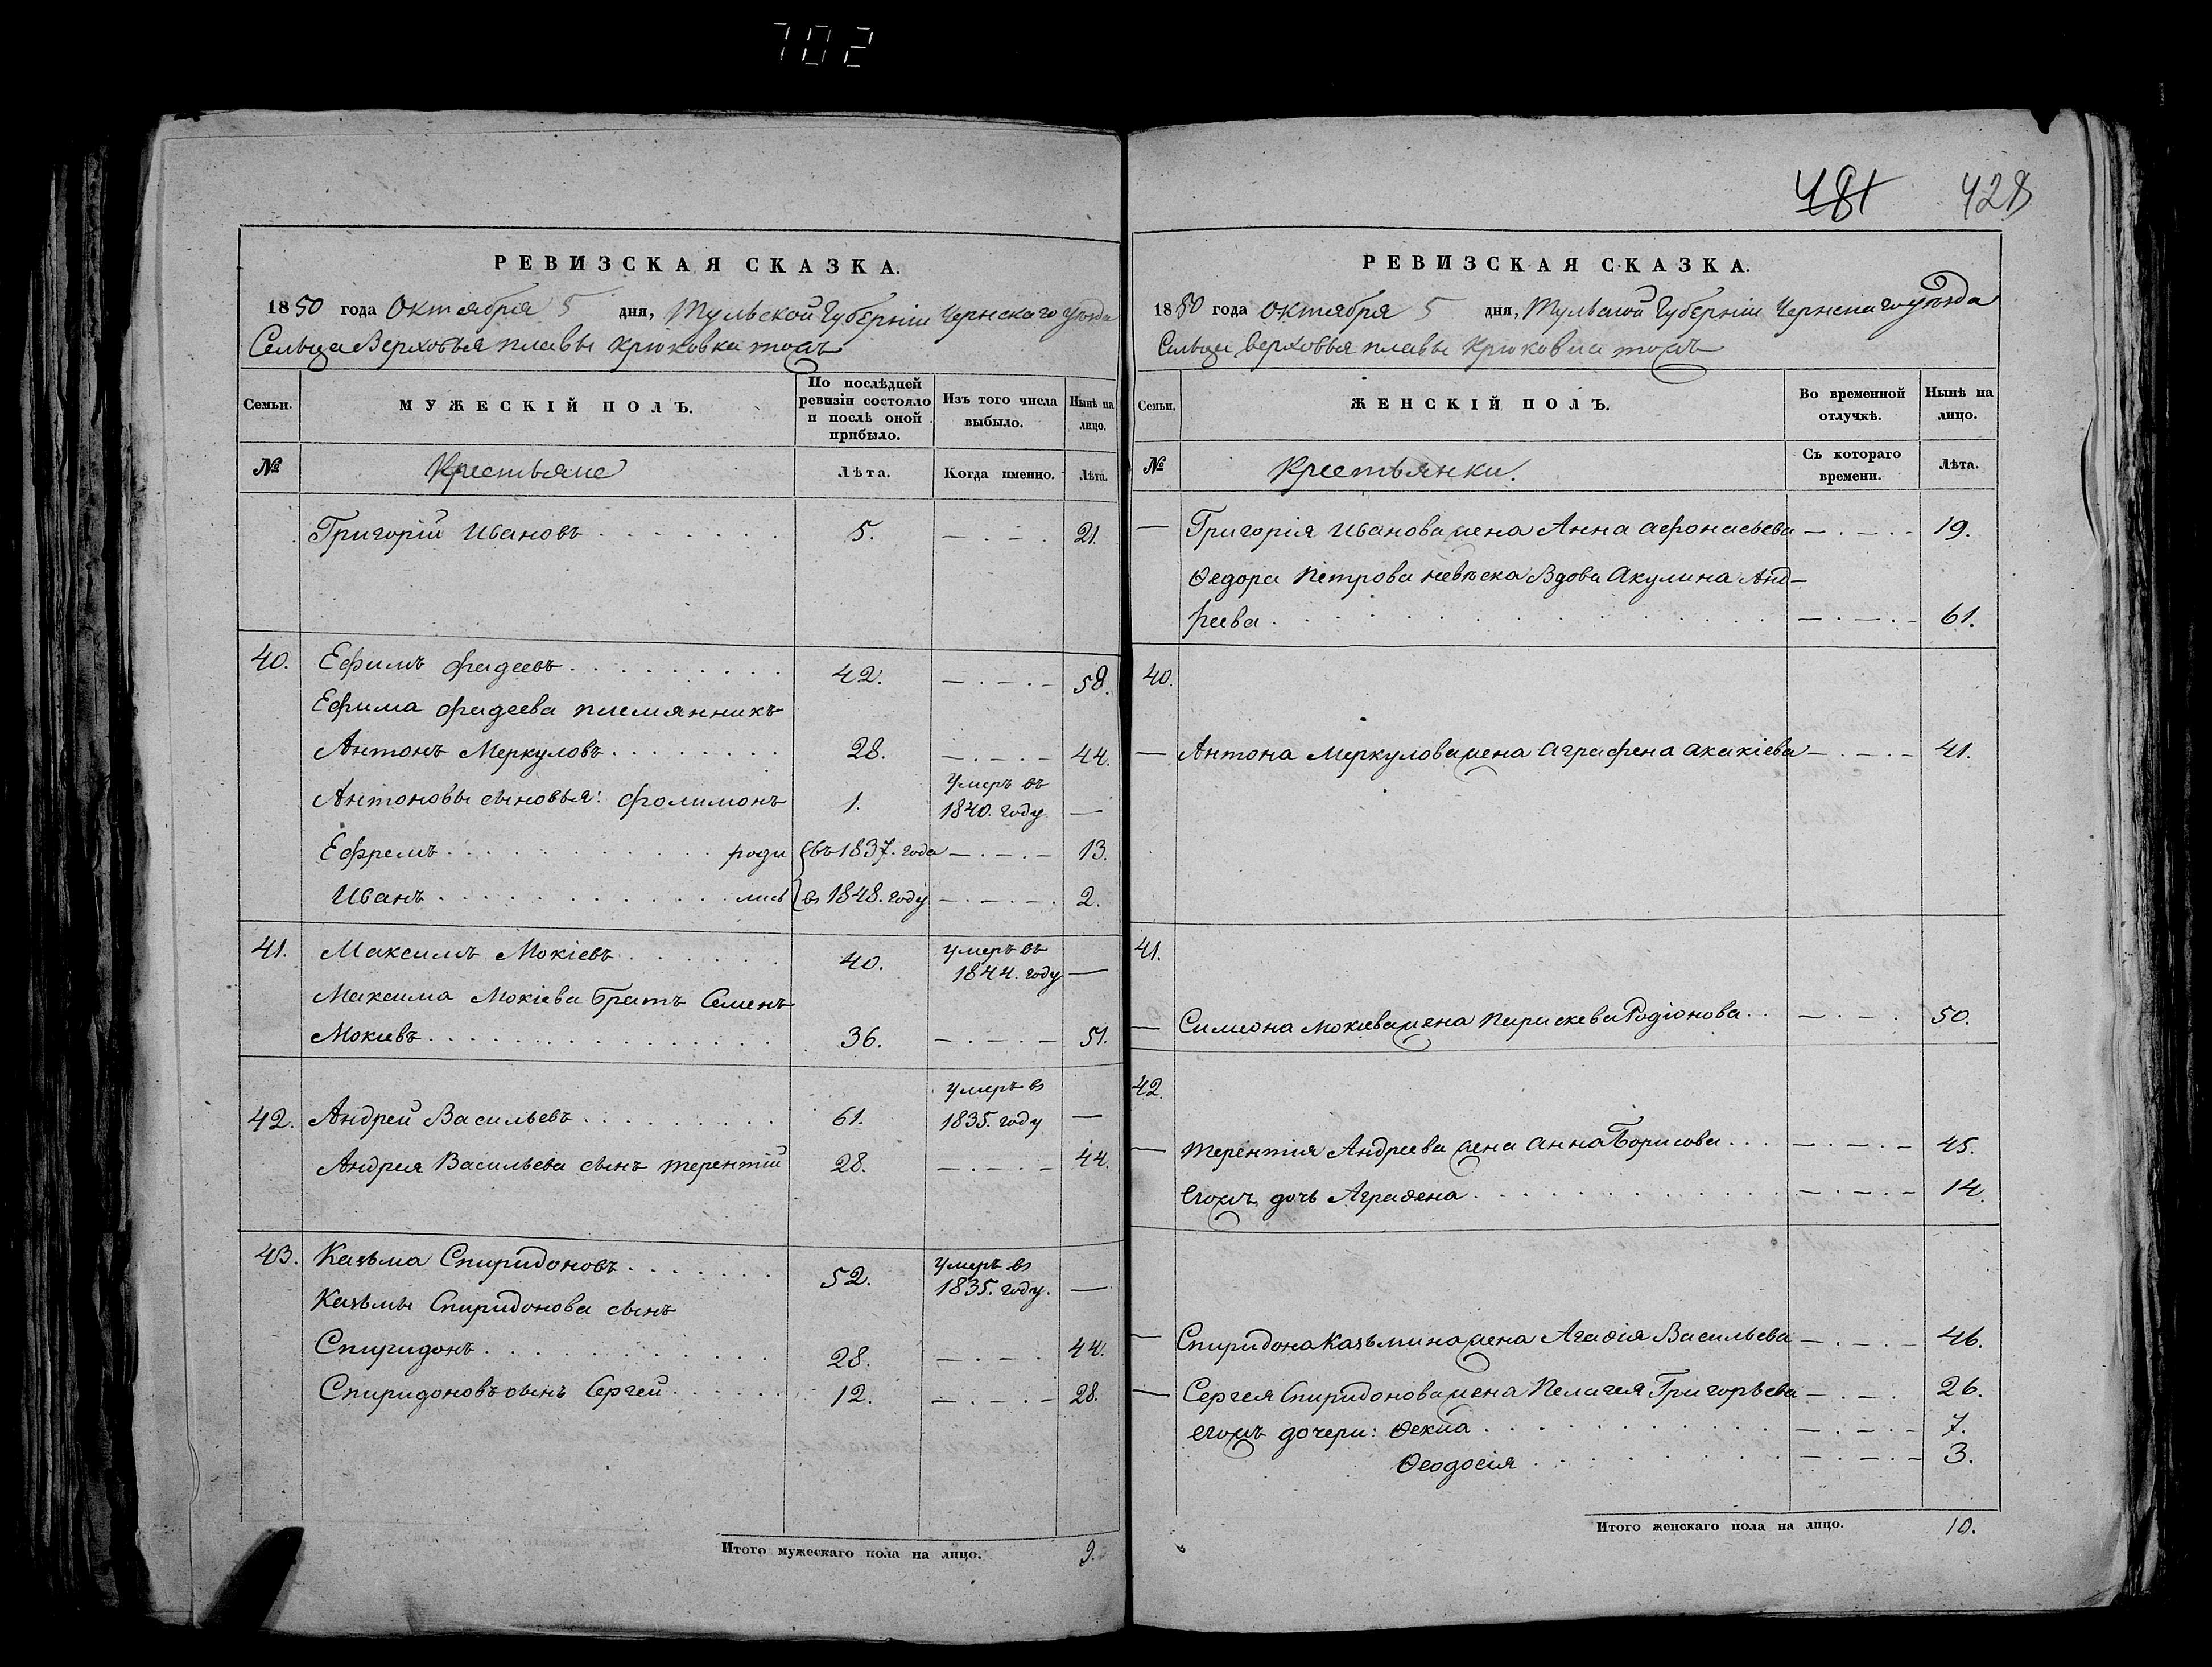 702
481 428
РЕВИЗСКАЯ СКАЗКА.
1850 года Октября 5 дня, Тульской Губерніи Чернскаго уѣзда
Сельца Верховья плавы Крюковка тожъ
Семьи. МУЖЕСКІЙ ПОЛЪ. По послѣдней ревизіи состояло и послѣ оной прибыло. Изъ того числа выбыло. Нынѣ на лицо.
№ Крестьяне Лѣта. Когда именно. Лѣта.
Григорій Ивановъ 5. 21.
40. Ефимъ Фадеевъ 42. 58.
Ефима Фадеева племянникъ
Антонъ Меркуловъ 28. 44.
Антоновы сыновья: Фолимонъ 1. Умеръ въ 1840. году —
Ефремъ роди въ 1837. года 13.
Иванъ лись в 1848. году 2.
41. Максимъ Мокіевъ 40. умеръ въ 1844. году —
Максима Мокіева братъ Семенъ
Мокіевъ 36. 51.
42. Андрей Васильевъ 61. умеръ в 1835. году —
Андрея Васильева сынъ терентій 28. 44.
43. Казьма Спиридоновъ 52. умеръ в 1835. году. —
Казьмы Спиридонова сынъ
Спиридонъ 28. 44.
Спиридоновъ сынъ Сергей 12. 28.
Итого мужескаго пола на лицо. 9.
РЕВИЗСКАЯ СКАЗКА.
1850 года Октября 5 дня, Тульской Губерніи Чернскаго уѣзда
Сельца верховья плавы Крюковка тожъ
Семьи. ЖЕНСКІЙ ПОЛЪ. Во временной отлучкѣ. Нынѣ на лицо.
№ Крестьянки. Съ котораго времени. Лѣта.
— Григорія Иванова жена Анна Афонасьева 19.
Ѳедора Петрова невѣска Вдова Акулина Анд-
реева 61.
40.
— Антона Меркулова жена Аграфена Акакіева 41.
41.
— Симиона Мокіева жена Параскева Родіонова 50.
42.
— терентія Андреева жена Анна Борисова 45.
Егожъ дочь Аграѳена 14.
— Спиридона Казьмина жена Агаѳія Васильева 46.
— Сергея Спиридонова жена Пелагея Григорьева 26.
егожъ дочери: Ѳекла 7.
Ѳеодосія 3.
Итого женскаго пола на лицо. 10.